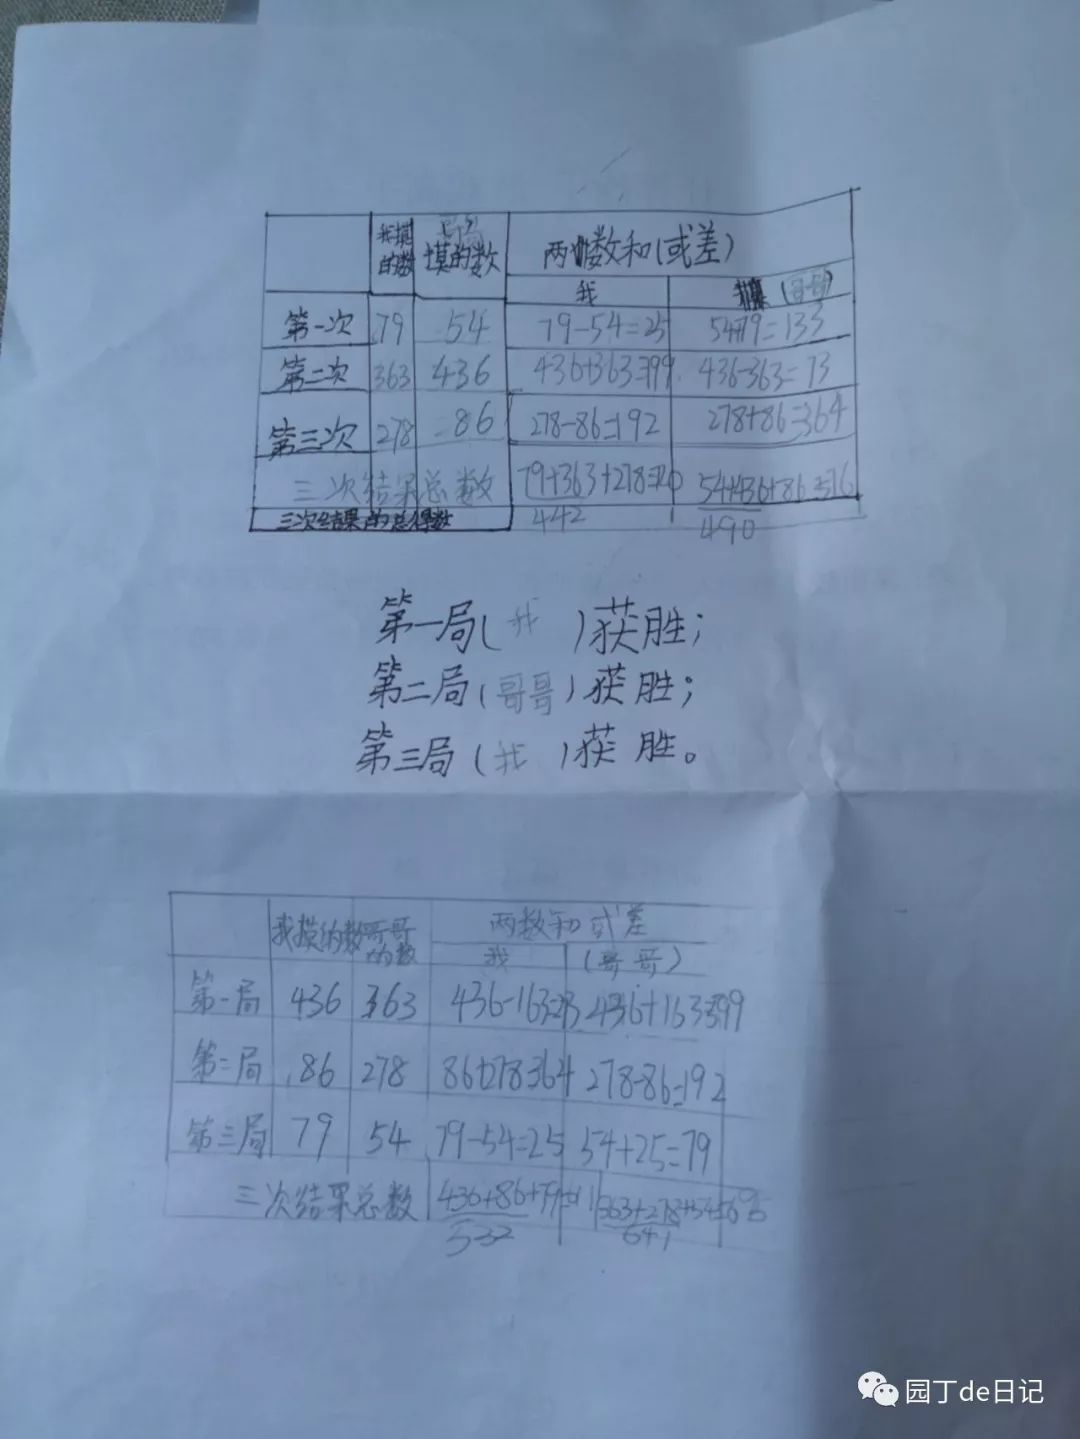 我摸的数 哥哥摸的数 两个数和(或差)
我 (哥哥)
第一次 79 54 79-54=25 54+79=133
第二次 363 436 436+363=799 436-363=73
第三次 278 86 278-86=192 278+86=364
三次结果总数 79+363+278=720 54+436+86=576
三次结果的总得数 442 490
第一局(我)获胜;
第二局(哥哥)获胜;
第三局(我)获胜。
我摸的数 哥哥的数 两数和或差
我 (哥哥)
第一局 436 363
第二局 86 278 86+278=364 278-86=192
第三局 79 54 79-54=25 54+25=79
三次结果总数 436+86+79= 363+278+54=695
532 641
园丁de日记